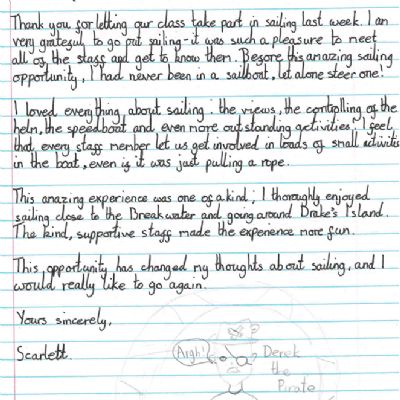 Thank you for letting our class take part in sailing last week. I am
very grateful to go out sailing - it was such a pleasure to meet
all of the staff and get to know them. Before this amazing sailing
opportunity, I had never been in a sailboat, let alone steer one!
I loved everything about sailing: the views, the controlling of the
helm, the speedboat and even more outstanding activities. I feel
that every staff member let us get involved in loads of small activities
in the boat, even if it was just pulling a rope.
This amazing experience was one of a kind; I thoroughly enjoyed
sailing close to the Breakwater and going around Drake's Island.
The kind, supportive staff made the experience more fun.
This opportunity has changed my thoughts about sailing, and I
would really like to go again.
Yours sincerely,
Scarlett.
Argh!
Derek
the
Pirate